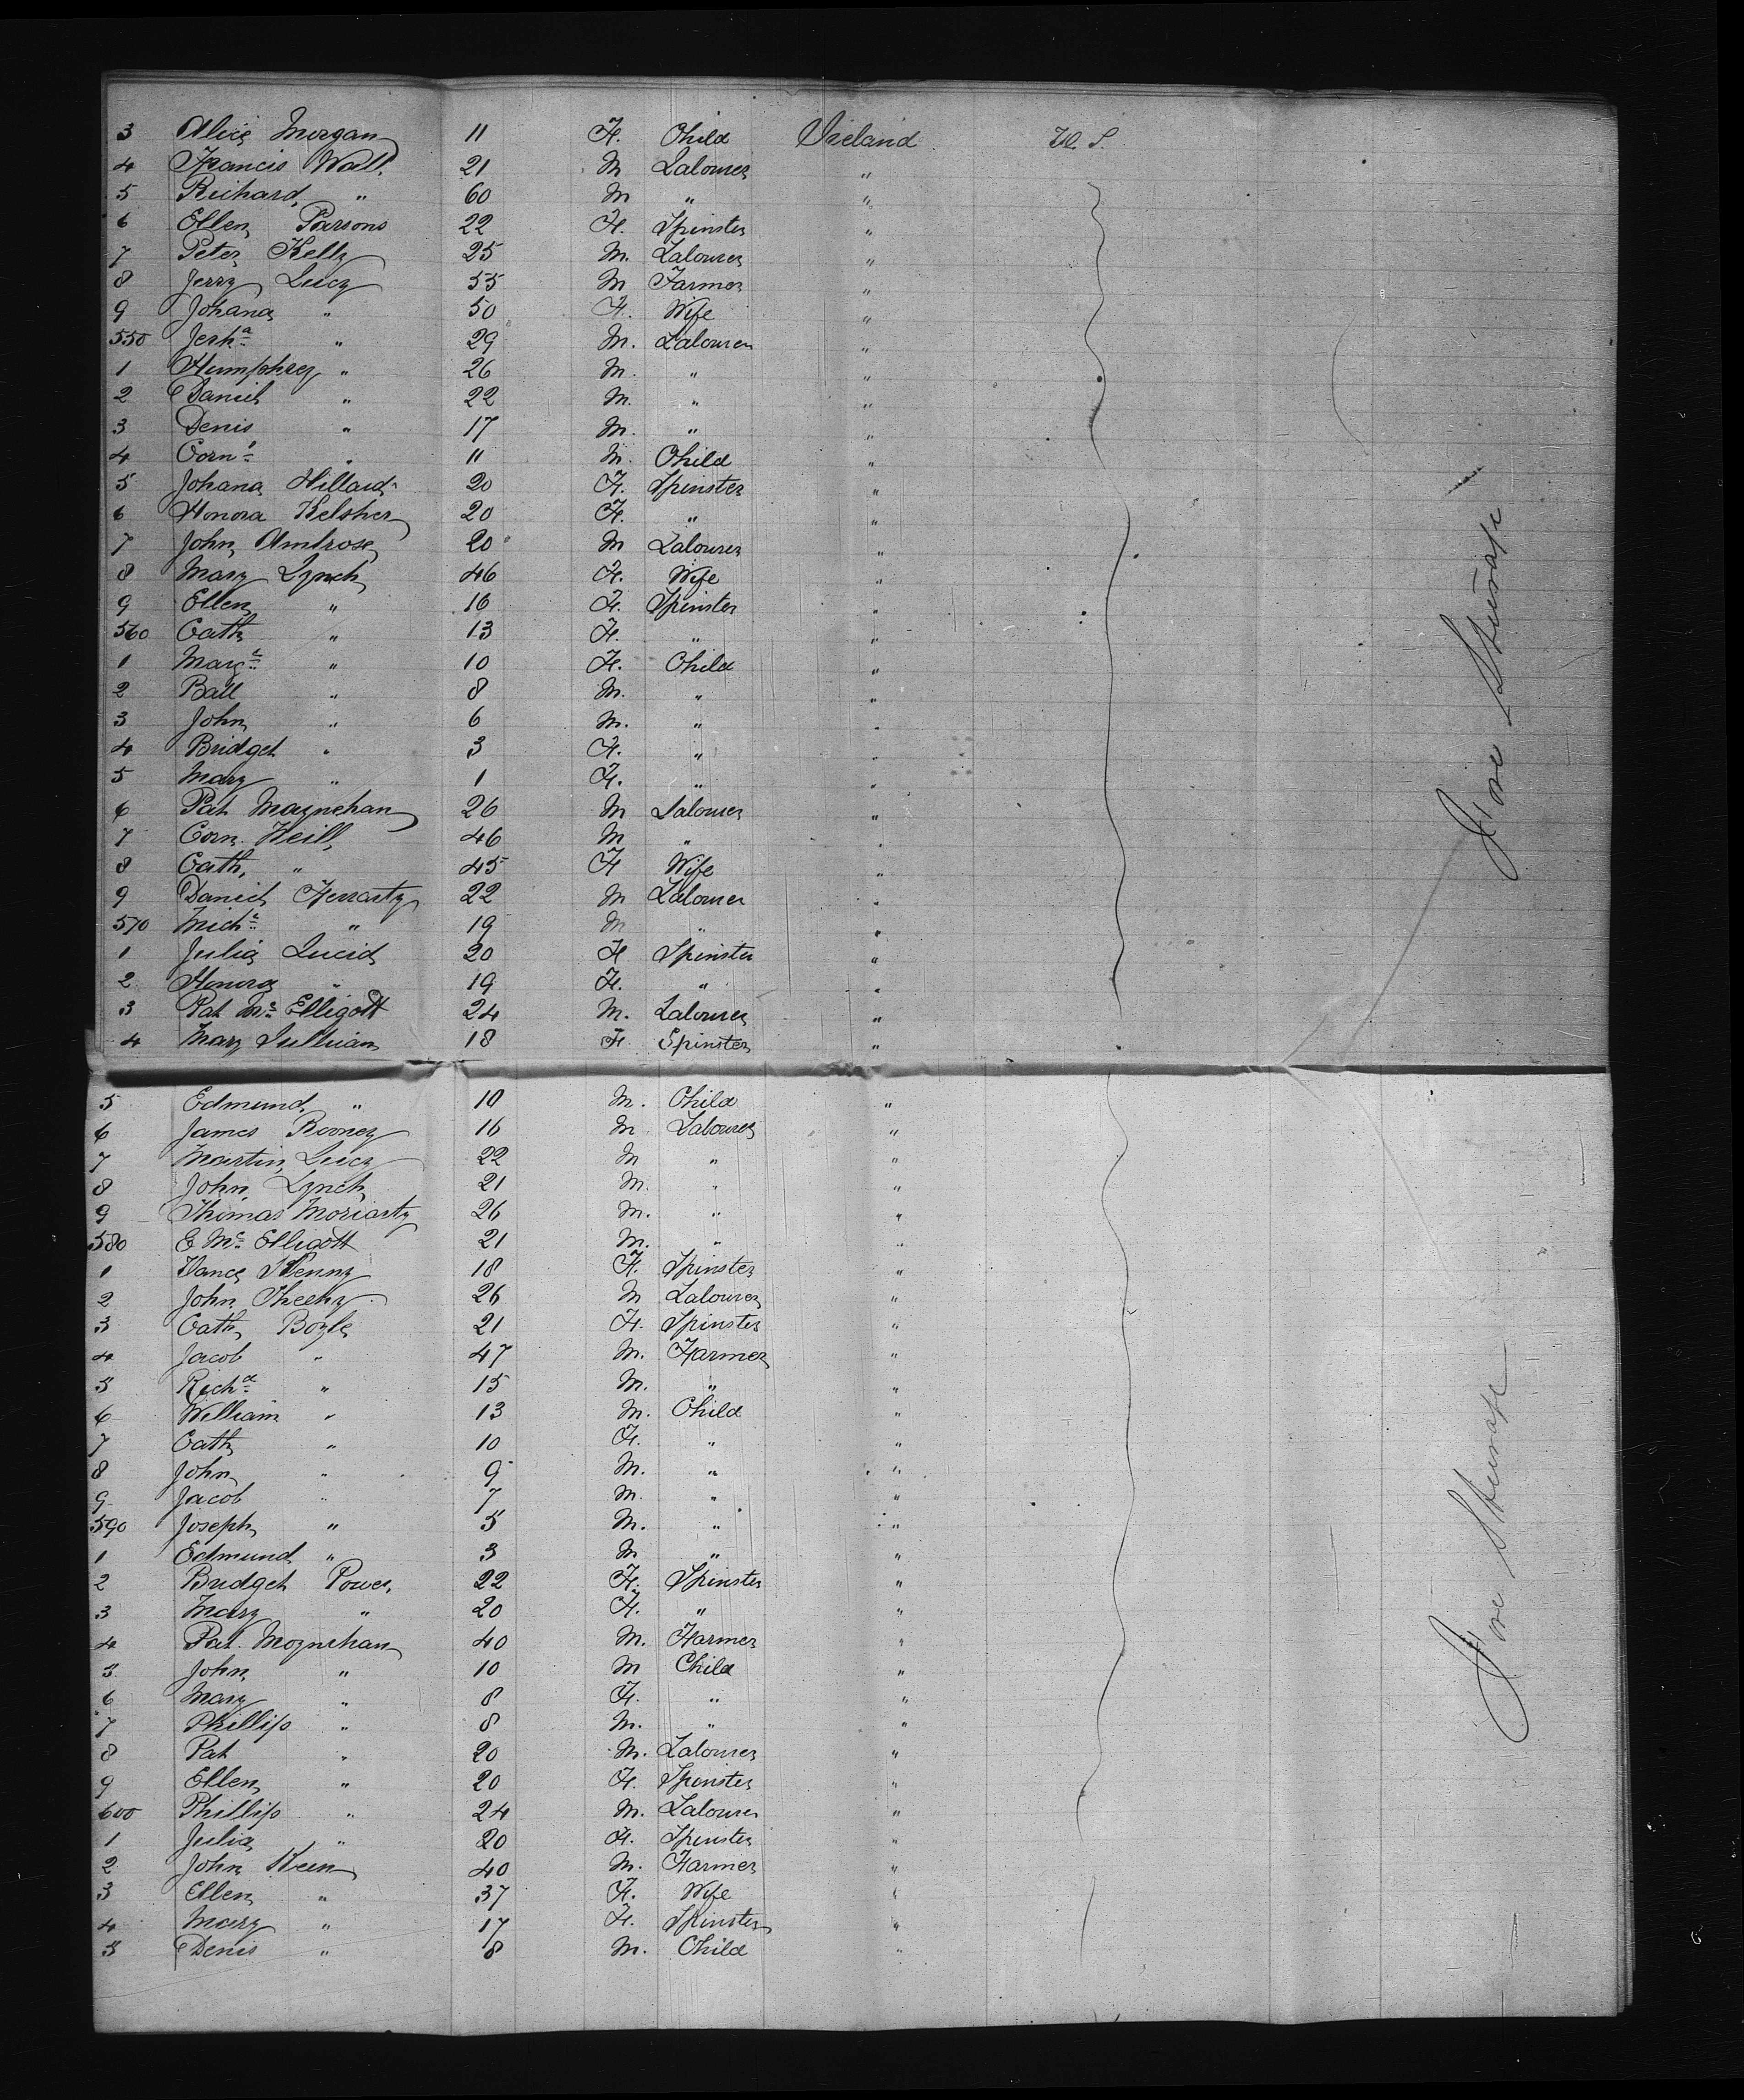 3 Alice Morgan 11 F. Child Ireland U. S.
4 Francis Wall 21 M Labourer "
5 Richard " 60 M " "
6 Ellen Parsons 22 F. Spinster "
7 Peter Kelly 25 M. Labourer "
8 Jerry Lucy 55 M Farmer "
9 Johana " 50 F. Wife "
550 Jerh^a " 29 M. Labourer "
1 Humphrey " 26 M. " "
2 Daniel " 22 M. " "
3 Denis " 17 M. " "
4 Corn^s " 11 M. Child "
5 Johana Hillard 20 F. Spinster "
6 Honora Kelsher 20 F. " "
7 John Ambrose 20 M Labourer "
8 Mary Lynch 46 F. Wife "
9 Ellen " 16 F. Spinster "
560 Cath " 13 F. " "
1 Marg^t " 10 F. Child "
2 Batt " 8 M. " "
3 John " 6 M. " "
4 Bridget " 3 F. " "
5 Mary " 1 F. " "
6 Pat Moynehan 26 M Labourer "
7 Corn. Neill 46 M " "
8 Cath. " 45 F Wife "
9 Daniel 22 M Labourer "
570 Mich^l " 19 M " "
1 Julia Lucid 20 F Spinster "
2 Honora " 19 F. " "
3 Pat Mc Elligott 24 M. Labourer "
4 Mary Sullivan 18 F Spinster "
5 Edmund " 10 M. Child "
6 James Rooney 16 M. Labourer "
7 Martin Lucy 22 M " "
8 John Lynch 21 M. " "
9 Thomas Moriarty 26 M. " "
580 E Mc Elligott 21 M. " "
1 Nance Kenny 18 F. Spinster "
2 John Sheehy 26 M Labourer "
3 Cath Boyle 21 F. Spinster "
4 Jacob " 47 M. Farmer "
5 Rich^d " 15 M. " "
6 William " 13 M. Child "
7 Cath " 10 F. " "
8 John " 9 M. " "
9 Jacob " 7 M. " "
590 Joseph " 5 M. " "
1 Edmund " 3 M " "
2 Bridget Power 22 F. Spinster "
3 Mary " 20 F. " "
4 Pat. Moynehan 40 M. Farmer "
5 John " 10 M Child "
6 Mary " 8 F. " "
7 Phillip " 8 M. " "
8 Pat " 20 M. Labourer "
9 Ellen " 20 F. Spinster "
600 Phillip " 24 M. Labourer "
1 Julia " 20 F. Spinster "
2 John 40 M. Farmer "
3 Ellen " 37 F. Wife "
4 Mary " 17 F. Spinster "
5 Denis " 8 M. Child "
Fore Steerage
Fore Steerage